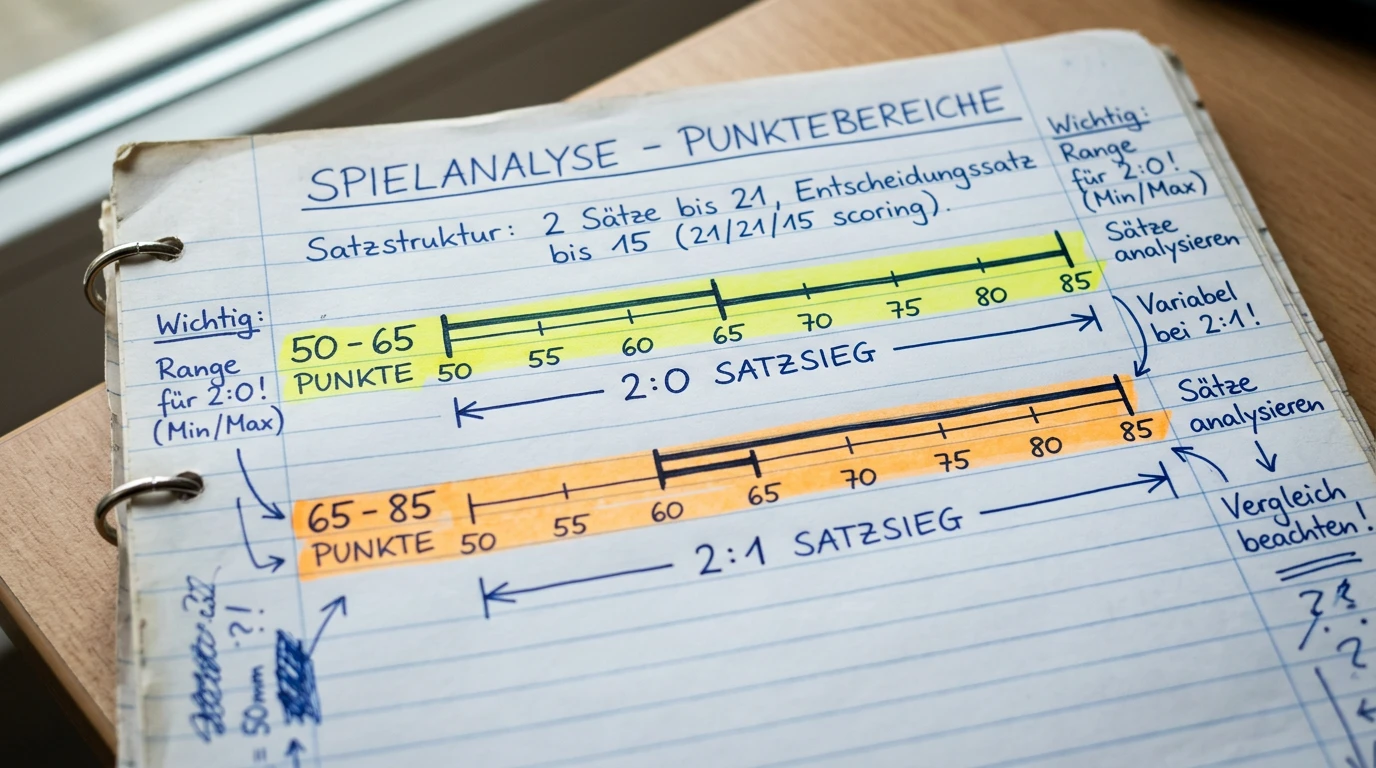 SPIELANALYSE – PUNKTEBEREICHE
Satzstruktur: 2 Sätze bis 21, Entscheidungssatz
bis 15 (21/21/15 scoring).
Wichtig:
Range
für 2:0!
(Min/Max)
Sätze
analysieren
Variabel
bei 2:1!
Wichtig:
Range
für 2:0!
(Min/Max)
50 - 65
PUNKTE
50 55 60 65 70 75 80 85
2:0 SATZSIEG
65 - 85
PUNKTE
50 55 60 65 70 75 80 85
2:1 SATZSIEG
Sätze
analysieren
Vergleich
beachten!
? ?
?
?!
= 50mm